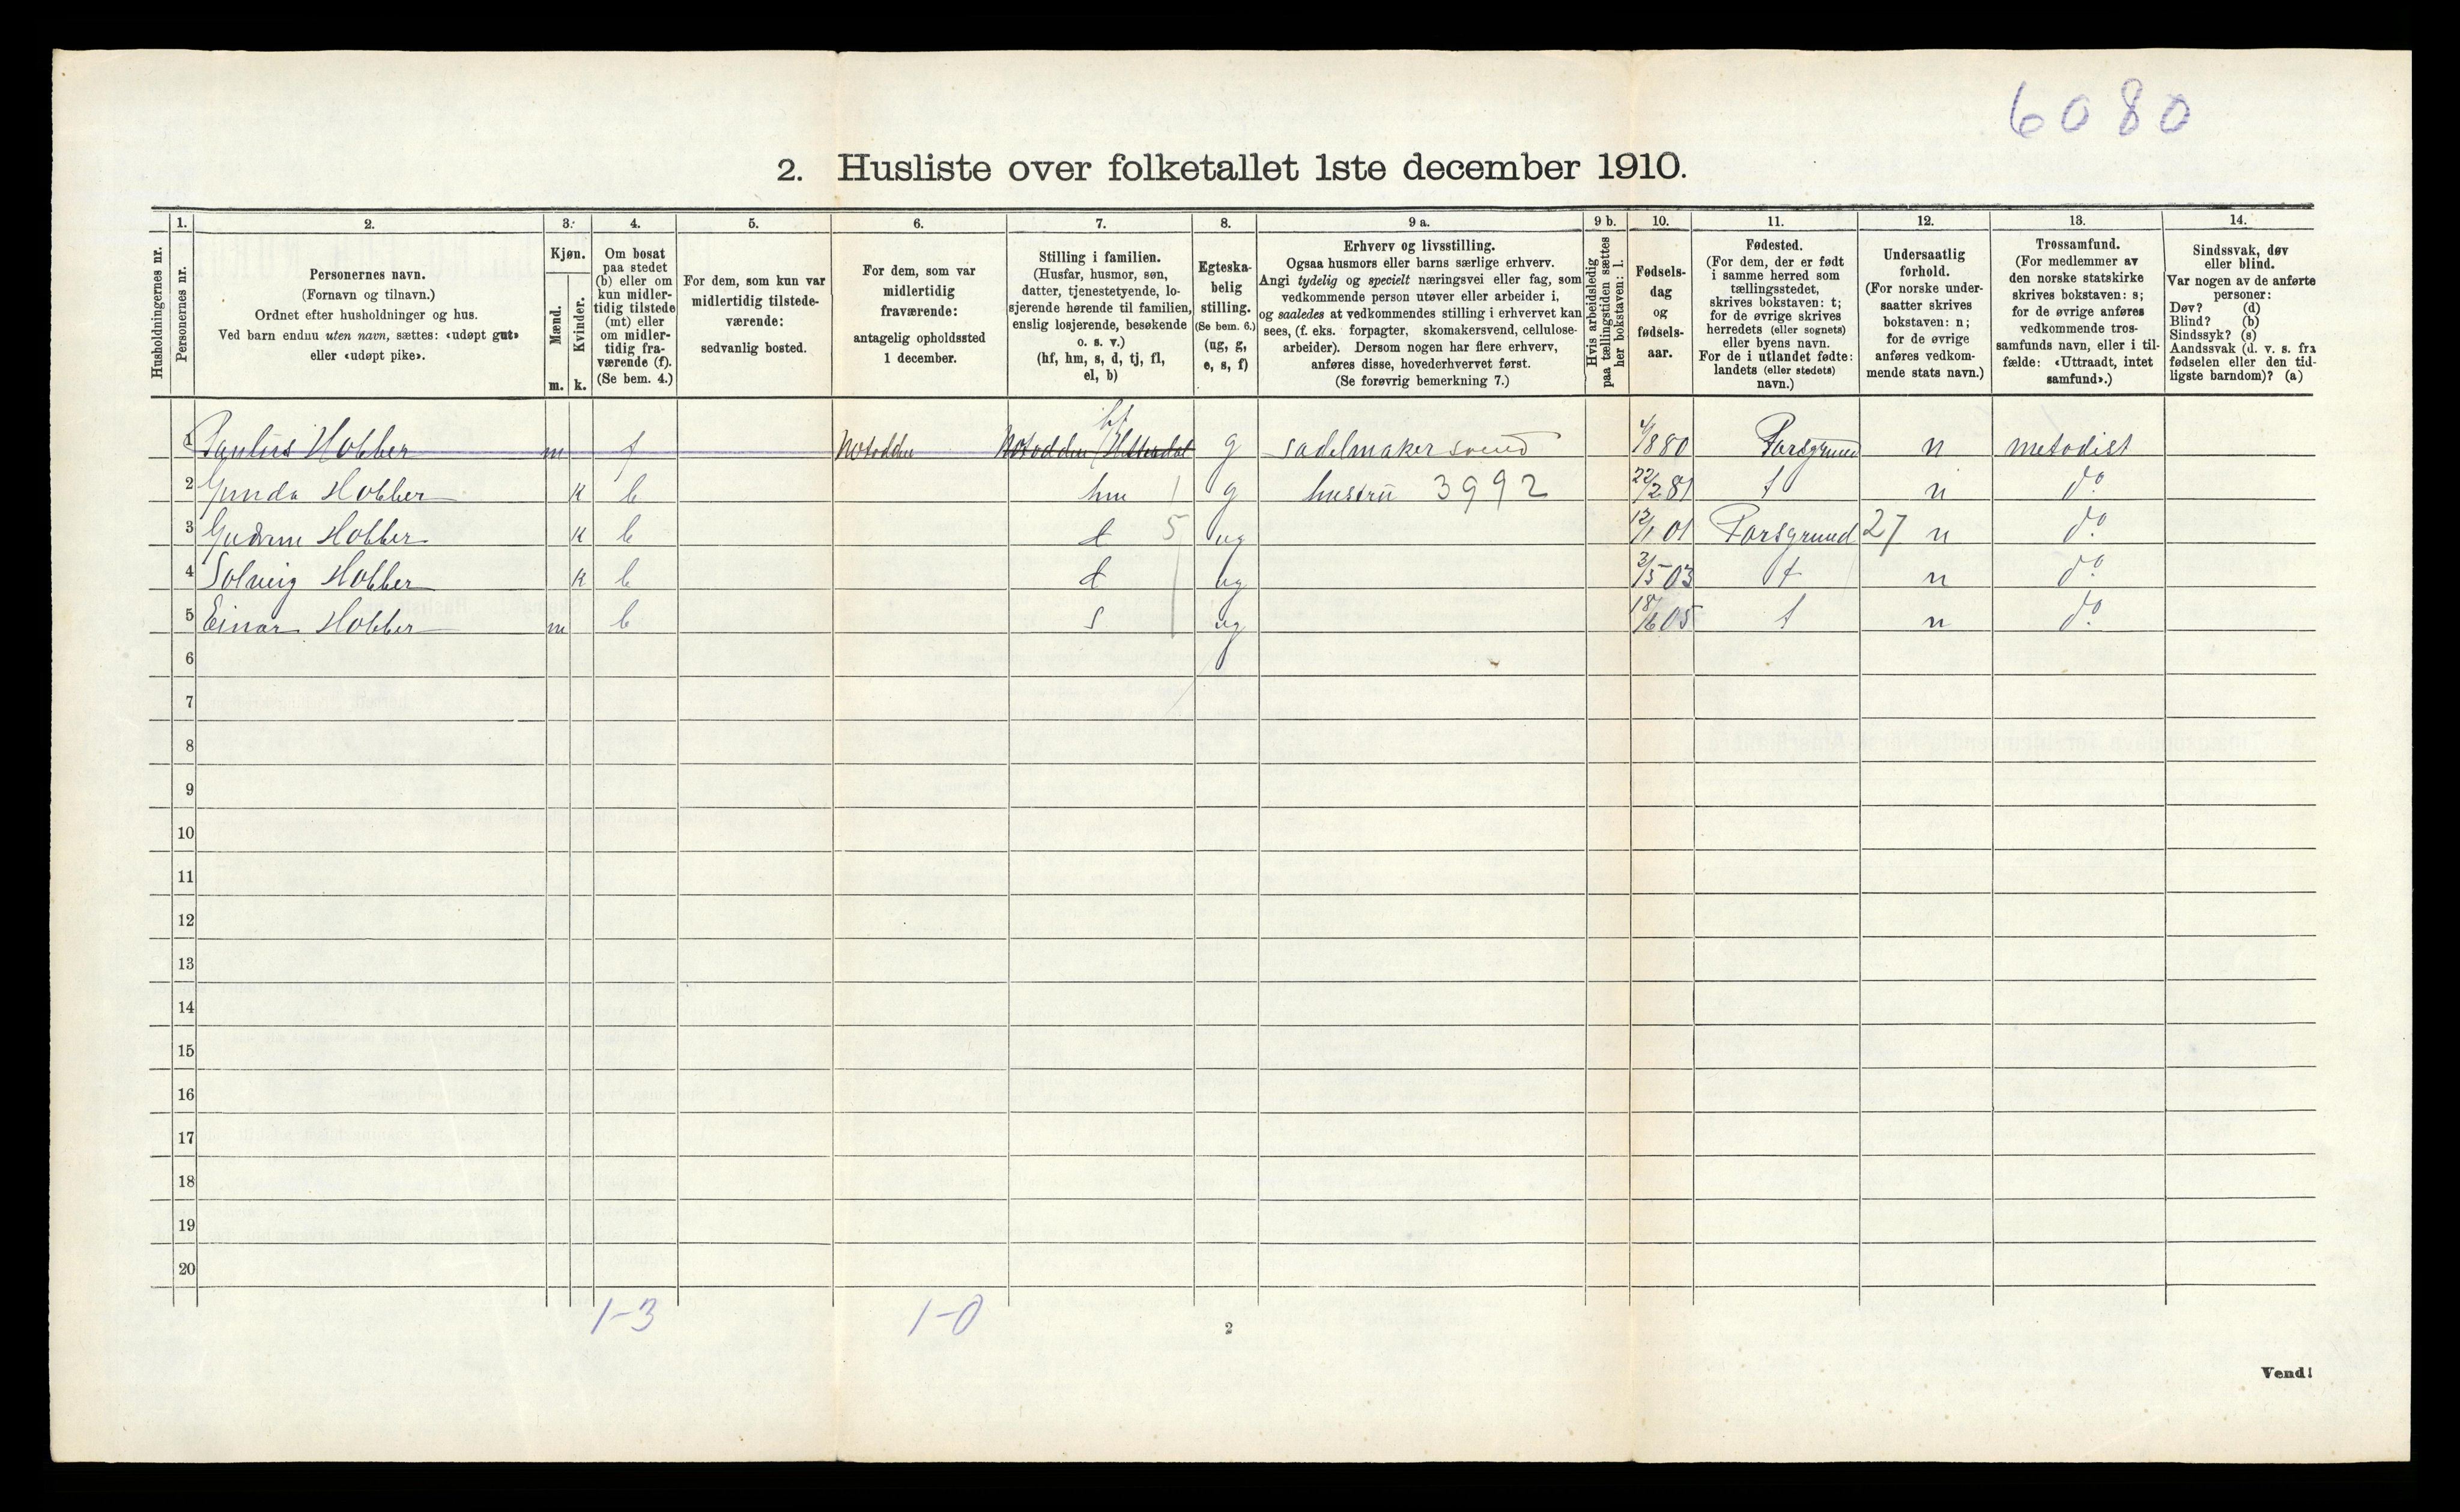 6080
2. Husliste over folketallet 1ste december 1910.
Husholdningernes nr.
1. Personernes nr.
2. Personernes navn.
(Fornavn og tilnavn.)
Ordnet efter husholdninger og hus.
Ved barn endnu uten navn, sættes: «udøpt gut»
eller «udøpt pike».
3. Kjøn.
Mænd. m.
Kvinder. k.
4. Om bosat
paa stedet
(b) eller om
kun midler-
tidig tilstede
(mt) eller
om midler-
tidig fra-
værende (f).
(Se bem. 4.)
5. For dem, som kun var
midlertidig tilstede-
værende:
sedvanlig bosted.
6. For dem, som var
midlertidig
fraværende:
antagelig opholdssted
1 december.
7. Stilling i familien.
(Husfar, husmor, søn,
datter, tjenestetyende, lo-
sjerende hørende til familien,
enslig losjerende, besøkende
o. s. v.)
(hf, hm, s, d, tj, fl,
el, b)
8. Egteska-
belig
stilling.
(Se bem. 6.)
(ug, g,
e, s, f)
9 a. Erhverv og livsstilling.
Ogsaa husmors eller barns særlige erhverv.
Angi tydelig og specielt næringsvei eller fag, som
vedkommende person utøver eller arbeider i,
og saaledes at vedkommendes stilling i erhvervet kan
sees, (f. eks. forpagter, skomakersvend, cellulose-
arbeider). Dersom nogen har flere erhverv,
anføres disse, hovederhvervet først.
(Se forøvrig bemerkning 7.)
9 b. Hvis arbeidsledig
paa tællingstiden sættes
her bokstaven: l.
10. Fødsels-
dag
og
fødsels-
aar.
11. Fødested.
(For dem, der er født
i samme herred som
tællingsstedet,
skrives bokstaven: t;
for de øvrige skrives
herredets (eller sognets)
eller byens navn.
For de i utlandet fødte:
landets (eller stedets)
navn.)
12. Undersaatlig
forhold.
(For norske under-
saatter skrives
bokstaven: n;
for de øvrige
anføres vedkom-
mende stats navn.)
13. Trossamfund.
(For medlemmer av
den norske statskirke
skrives bokstaven: s;
for de øvrige anføres
vedkommende tros-
samfunds navn, eller i til-
fælde: «Uttraadt, intet
samfund».)
14. Sindssvak, døv
eller blind.
Var nogen av de anførte
personer:
Døv? (d)
Blind? (b)
Sindssyk? (s)
Aandssvak (d. v. s. fra
fødselen eller den tid-
ligste barndom)? (a)
1 Paulius Hobber m f Notodden Notodden/Hitterdal hf g sadelmakersvend 4/8 80 Porsgrund n metodist
2 Gunda Hobber k b hm 1 g hustru 3992 22/2 81 t n do
3 Gudrun Hobber k b d 5 ug 12/1 01 Porsgrund 27 n do
4 Solveig Hobber k b d ug 3/5 03 t n do
5 Einar Hobber m b s ug 18/6 05 t n do
6
7
8
9
10
11
12
13
14
15
16
17
18
19
20
1-3 1-0
2
Vend!